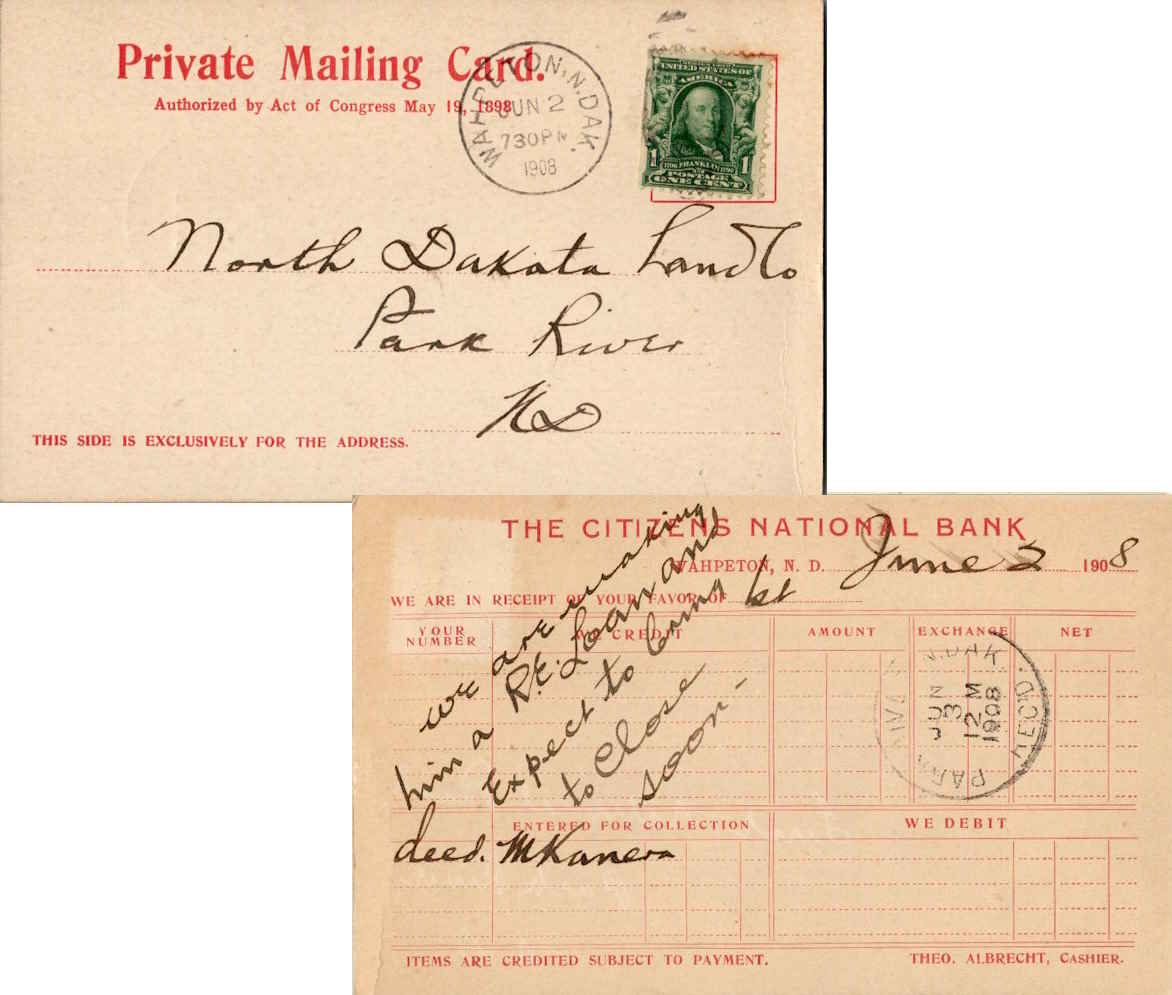 Private Mailing Card.
Authorized by Act of Congress May 19, 1898
WAHPETON, N. DAK.
JUN 2
730 PM
1908
UNITED STATES OF
AMERICA
1 1706 FRANKLIN 1790 1
POSTAGE
ONE CENT
North Dakota Land Co
Park River
ND
THIS SIDE IS EXCLUSIVELY FOR THE ADDRESS.
THE CITIZENS NATIONAL BANK
WAHPETON, N. D. June 2 1908
WE ARE IN RECEIPT OF YOUR FAVOR OF 1st
YOUR NUMBER WE CREDIT AMOUNT EXCHANGE NET
we are making
him a R.E. Loan and
Expect to bring
to Close
soon -
PARK RIVER N. DAK. REC'D.
JUN
3
12 M
1908
ENTERED FOR COLLECTION WE DEBIT
deed.
ITEMS ARE CREDITED SUBJECT TO PAYMENT. THEO. ALBRECHT, CASHIER.